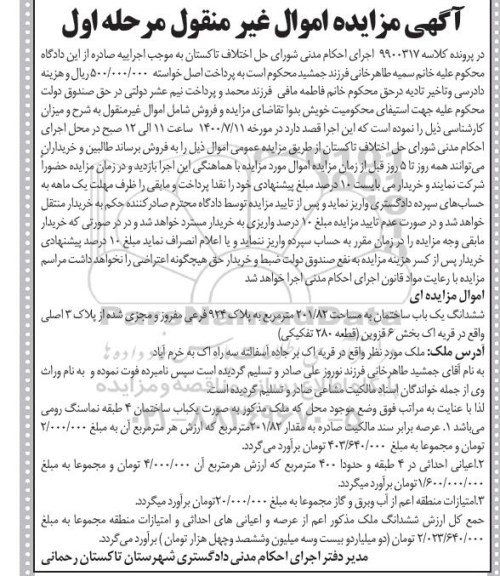 آگهی مزایده اموال غیر منقول مرحله اول
در پرونده کلاسه ۹۹۰۰۳۱۷ اجرای احکام مدنی شورای حل اختلاف تاکستان به موجب اجراییه صادره از این دادگاه
محکوم علیه خانم سمیه طاهرخانی فرزند جمشید محکوم است به پرداخت اصل خواسته ۵۰۰/۰۰۰/۰۰۰ ریال و هزینه
دادرسی وتاخیر تادیه درحق محکوم خانم فاطمه مافی فرزند محمد و پرداخت نیم عشر دولتی در حق صندوق دولت
محکوم علیه جهت استیفای محکومیت خویش بدوا تقاضای مزایده و فروش شامل اموال غیرمنقول به شرح و میزان
کارشناسی ذیل را نموده است که این اجرا قصد دارد در مورخه ۱۴۰۰/۷/۱۱ ساعت ۱۱ الی ۱۲ صبح در محل اجرای
احکام مدنی شورای حل اختلاف تاکستان از طریق مزایده عمومی اموال ذیل را به فروش برساند طالبین و خریداران
می‌توانند همه روز تا ۵ روز قبل از زمان مزایده اموال مورد مزایده با هماهنگی این اجرا بازدید و در زمان مزایده حضورا
شرکت نمایند و خریدار می بایست ۱۰ درصد مبلغ پیشنهادی خود را نقدا پرداخت و مابقی را ظرف مهلت یک ماهه به
حساب‌های سپرده دادگستری واریز نماید و پس از تایید مزایده توسط دادگاه محترم صادرکننده حکم به خریدار منتقل
خواهد شد و در صورت عدم تایید مزایده مبلغ ۱۰ درصد واریزی به خریدار مسترد خواهد شد و در در صورتی که خریدار
مابقی وجه مزایده را در زمان مقرر به حساب سپرده واریز ننماید و یا اعلام انصراف نماید مبلغ ۱۰ درصد پیشنهادی
خریدار پس از کسر هزینه مزایده به نفع صندوق دولت ضبط و خریدار حق هیچگونه اعتراضی را نخواهد داشت مراسم
مزایده با رعایت مواد قانون اجرای احکام مدنی اجرا خواهد شد
اموال مزایده ای
ششدانگ یک باب ساختمان به مساحت ۲۰۱/۸۲ مترمربع به پلاک ۹۲۴ فرعی مفروز و مجزی شده از پلاک ۳ اصلی
واقع در قریه اک بخش ۶ قزوین (قطعه ۲۸۰ تفکیکی)
آدرس ملک: ملک مورد نظر واقع در قریه اک بر جاده آسفالته سه راه اک به خرم آباد
به نام آقای جمشید طاهرخانی فرزند نوروز علی صادر و تسلیم گردیده است سپس نامبرده فوت نموده و به نام وراث
وی از جمله خواندگان اسناد مالکیت مشاعی صادر و تسلیم گردیده است.
لذا با عنایت به مراتب فوق وضع موجود محل که ملک مذکور به صورت یکباب ساختمان ۴ طبقه نماسنگ رومی
می‌باشد ۱. عرصه برابر سند مالکیت صادره به مقدار ۲۰۱/۸۲مترمربع که ارزش هر مترمربع آن به مبلغ ۲/۰۰۰/۰۰۰
تومان و مجموعا به مبلغ ۴۰۳/۶۴۰/۰۰۰ تومان برآورد می‌گردد.
۲.اعیانی احداثی در ۴ طبقه و حدودا ۴۰۰ مترمربع که ارزش هرمترمربع آن ۴/۰۰۰/۰۰۰ تومان و مجموعا به مبلغ
۱/۶۰۰/۰۰۰/۰۰۰تومان برآورد میگردد.
۳.امتیازات منطقه اعم از آب وبرق و گاز مجموعا به مبلغ ۲۰/۰۰۰/۰۰۰تومان برآورد میگردد.
جمع کل ارزش ششدانگ ملک مذکور اعم از عرصه و اعیانی های احداثی و امتیازات منطقه مجموعا به مبلغ
۲/۰۲۳/۶۴۰/۰۰۰ تومان (دو میلیاردو بیست وسه میلیون وششصد وچهل هزار تومان ) برآورد می‌گردد.
مدیر دفتر اجرای احکام مدنی دادگستری شهرستان تاکستان رحمانی